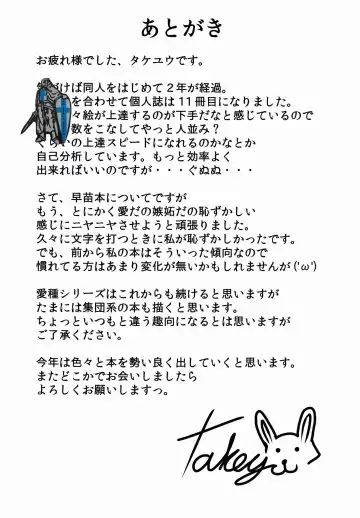 あとがき
お疲れ様でした、タケユウです。
づけば同人をはじめて2年が経過。
を合わせて個人誌は11冊目になりました。
々絵が上達するのが下手だなと感じているので
数をこなしてやっと人並み?
くらいの上達スピードになれるのかなとか
自己分析しています。もっと効率よく
出来ればいいのですが・・・ぐぬぬ・・・
さて、早苗本についてですが
もう、とにかく愛だの嫉妬だの恥ずかしい
感じにニヤニヤさせようと頑張りました。
久々に文字を打つときに私が恥ずかしかったです。
でも、前から私の本はそういった傾向なので
慣れてる方はあまり変化が無いかもしれませんが('ω')
愛種シリーズはこれからも続けると思いますが
たまには集団系の本も描くと思います。
ちょっといつもと違う趣向になるとは思いますが
ご了承ください。
今年は色々と本を勢い良く出していくと思います。
またどこかでお会いしましたら
よろしくお願いしますっ。
takey